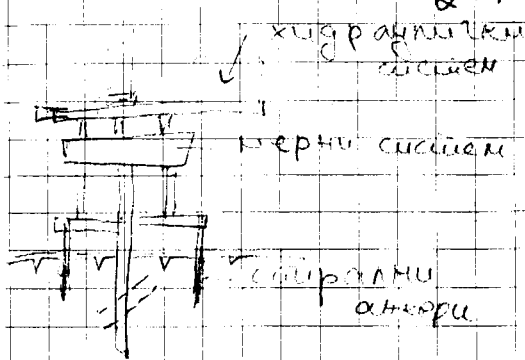 хидраулички
систем
мерни систем
спирални
анкери